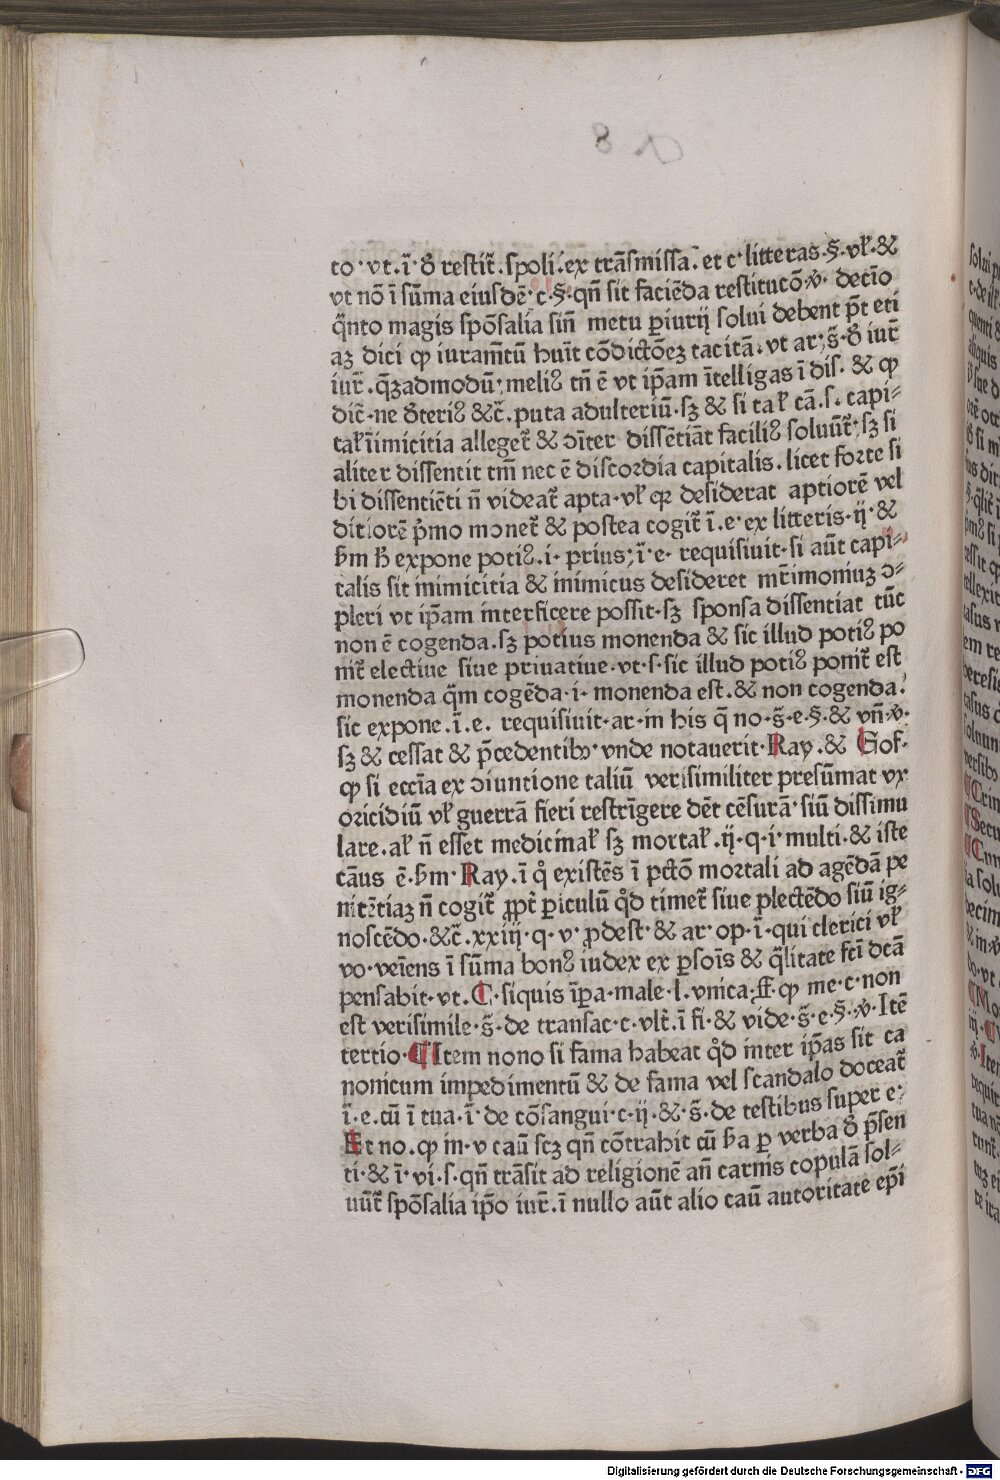 to · vt. ī · ꝺ̄ restit̄. spoli. ex trāsmissa. et c · litteras · § · vl̄ · &
vt nō ī sūma eiusdē · c · § · qn̄ sit faciēda restitucō · ꝟ · decīo
q̄nto magis spōsalia sin̄ metu ꝑiurij solui debent p̄t eti
aꝫ dici ꝙ iuramn̄tū huīt cōdictōeꝫ tacitā · vt ar; s̄ · ꝺ̄ iur̄
iur̄ . q̄ꝫadmodū; meliꝰ tn̄ ē vt ip̄am ītelligas ī dis̄ · & ꝙ
dic̄ · ne ꝺ̄teriꝰ &c̄ . puta adulteriū · sꝫ & si tal̄ cā · s · capi⸗
tal̄ īimicitia alleget̄ & ɔ̄iter dissētiāt faciliꝰ soluūt̄ ; sꝫ si
aliter dissentit tm̄ nec ē discordia capitalis . licet forte si
bi dissentiēti n̄ videat̄ apta · vl̄ qꝛ desiderat aptiorē vel
ditiorē p̄mo monet̄ & postea cogit̄ ī . e · ex litteris · ij · &
ẜm h̄ expone potiꝰ . i · prius; ī · e · requisiuit · si aūt capi⸗
talis sit inimicitia & inimicus desideret mr̄imoniuꝫ ɔ⸗
pleri vt ip̄am interficere possit · sꝫ sponsa dissentiat tūc
non ē cogenda . sꝫ potius monenda & sic illud potiꝰ po
nit̄ electiue siue priuatiue · vt · s · sic illud potiꝰ ponit̄ est
monenda q̄m cogēda · i · monenda est . & non cogenda .
sic expone . ī . e . requisiuit · ar · in his q̄ no · s̄ · e · § · & vn̄ · ꝟ ·
sꝫ & cessat & p̄cedentibꝫ · vnde notauerit · Ray . & Gof ·
ꝙ si eccīa ex ɔiunctione taliū verisimiliter presūmat vx
oricidiū vl̄ guerrā fieri restrīgere dēt cēsurā · siū dissimu
lare . al̄ n̄ esset medicinal̄ sꝫ mortal̄ . ij · q · i · multi · & iste
cāus ē · ẜm · Ray . ī q̊ existēs ī pctō mortali ad agēdā pe
nitētiaꝫ n̄ cogit̄ ꝓpt̄ ꝑiculū q̊d timet̄ siue plectēdo siū ig⸗
noscēdo · &c̄ . xxiij · q · v · ꝓdest · & ar · op · ī · qui clerici vl̄
vo · veīens ī sūma bonꝰ iudex ex ꝑsoīs & q̄litate fcī dcā
pensabit · vt . C · siquis īpa · male · l · vnica · ff · ꝙ me · c · non
est verisimile · s̄ · de transac · c · vlt̄ . ī fi · & vide · s̄ · e · § · ꝟ · Itē
tertio · ¶ Item nono si fama habeat q̊d inter ip̄as sit ca
nonicum impedimentū & de fama vel scandalo doceat̄
ī · e · cū ī tua · ī · de cōsangui · c · ij · & · s̄ · de testibus super e ·
Et no . ꝙ in · v caū scꝫ qn̄ cōtrahit cū ẜa ꝑ verba ꝺ̄ p̄sen
ti · & ī · vi · s · qn̄ trāsit ad religionē an̄ carnis copulā sol⸗
uūt̄ spōsalia ip̄o iur̄ . ī nullo aūt alio caū autoritate ep̄i
Digitalisierung gefördert durch die Deutsche Forschungsgemeinschaft - DFG